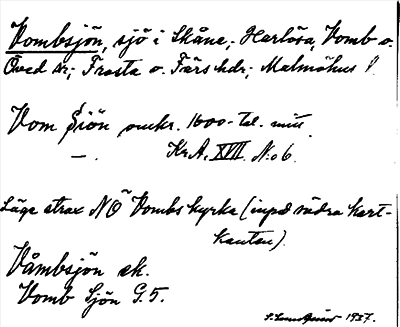 Vombsjön, sjö i Skåne; Harlösa, Vomb o.
Öved sr; Frosta o. Färs hdr; Malmöhus l.
Vom Siön omkr. 1600-tal. mitt
—. Kr.A. XVII. N:o 6.
Läge strax NO Vombs kyrka (inpå södra kart-
kanten).
Våmbsjön ek.
Vomb Sjön G. 5.
1937.